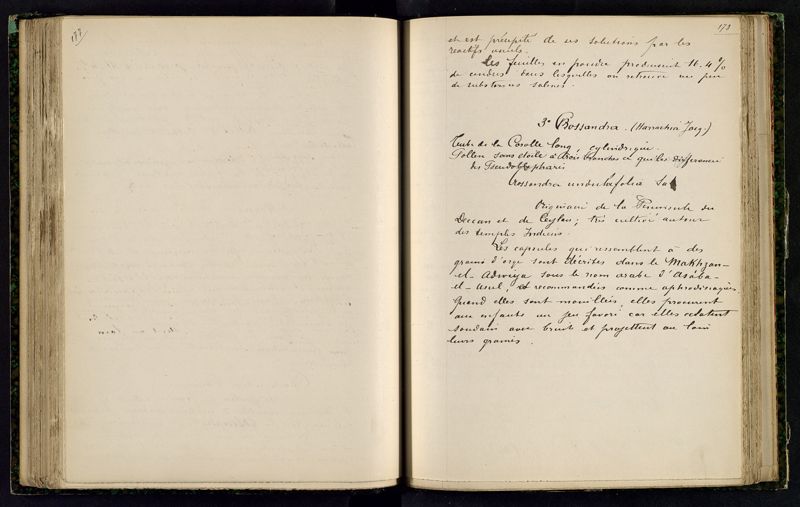 177
178
et est précipité de ses solutions par les
réactifs usuels.
Les feuilles en poudre produisent 16.4%
de cendres dans lesquelles on retrouve un peu
de substances salines.
3º Crossandra. (Harrachia Jacq.)
Tube de la Corolle long, cylindrique.
Pollen sans étoile à trois branches ce qui les différencie
des Pseudoblepharis
Crossandra undulæfolia Sal
Originaire de la Péninsule du
Deccan et de Ceylan; très cultivé autour
des temples Indiens.
Les capsules qui ressemblent à des
grains d'orge sont décrites dans le Makhzan-
el-Adwiya sous le nom arabe d'Asába-
el-usul, et recommandées comme aphrodisiaques.
Quand elles sont mouillées, elles procurent
aux enfants un jeu favori car elles éclatent
soudain avec bruit et projettent au loin
leurs graines.